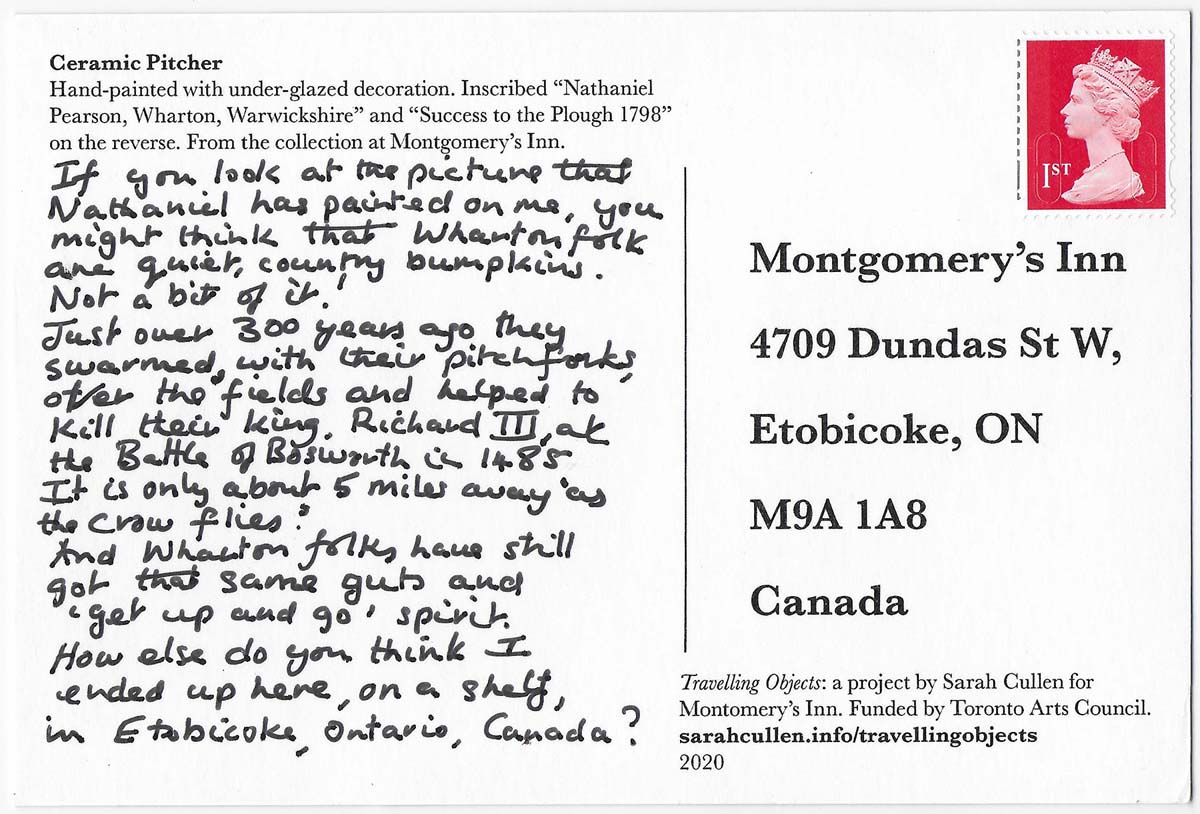 Ceramic Pitcher
Hand-painted with under-glazed decoration. Inscribed “Nathaniel
Pearson, Wharton, Warwickshire” and “Success to the Plough 1798”
on the reverse. From the collection at Montgomery’s Inn.
If you look at the picture that
Nathaniel has painted on me, you
might think that Wharton folk
are quiet, country bumpkins.
Not a bit of it!
Just over 300 years ago they
swarmed, with their pitchforks,
over the fields and helped to
kill their king, Richard III, at
the Battle of Bosworth in 1485
It is only about 5 miles away 'as
the crow flies'.
And Wharton folks have still
got that same guts and
'get up and go' spirit.
How else do you think I
ended up here, on a shelf,
in Etobicoke, Ontario, Canada?
1ST
Montgomery’s Inn
4709 Dundas St W,
Etobicoke, ON
M9A 1A8
Canada
Travelling Objects: a project by Sarah Cullen for
Montomery’s Inn. Funded by Toronto Arts Council.
sarahcullen.info/travellingobjects
2020